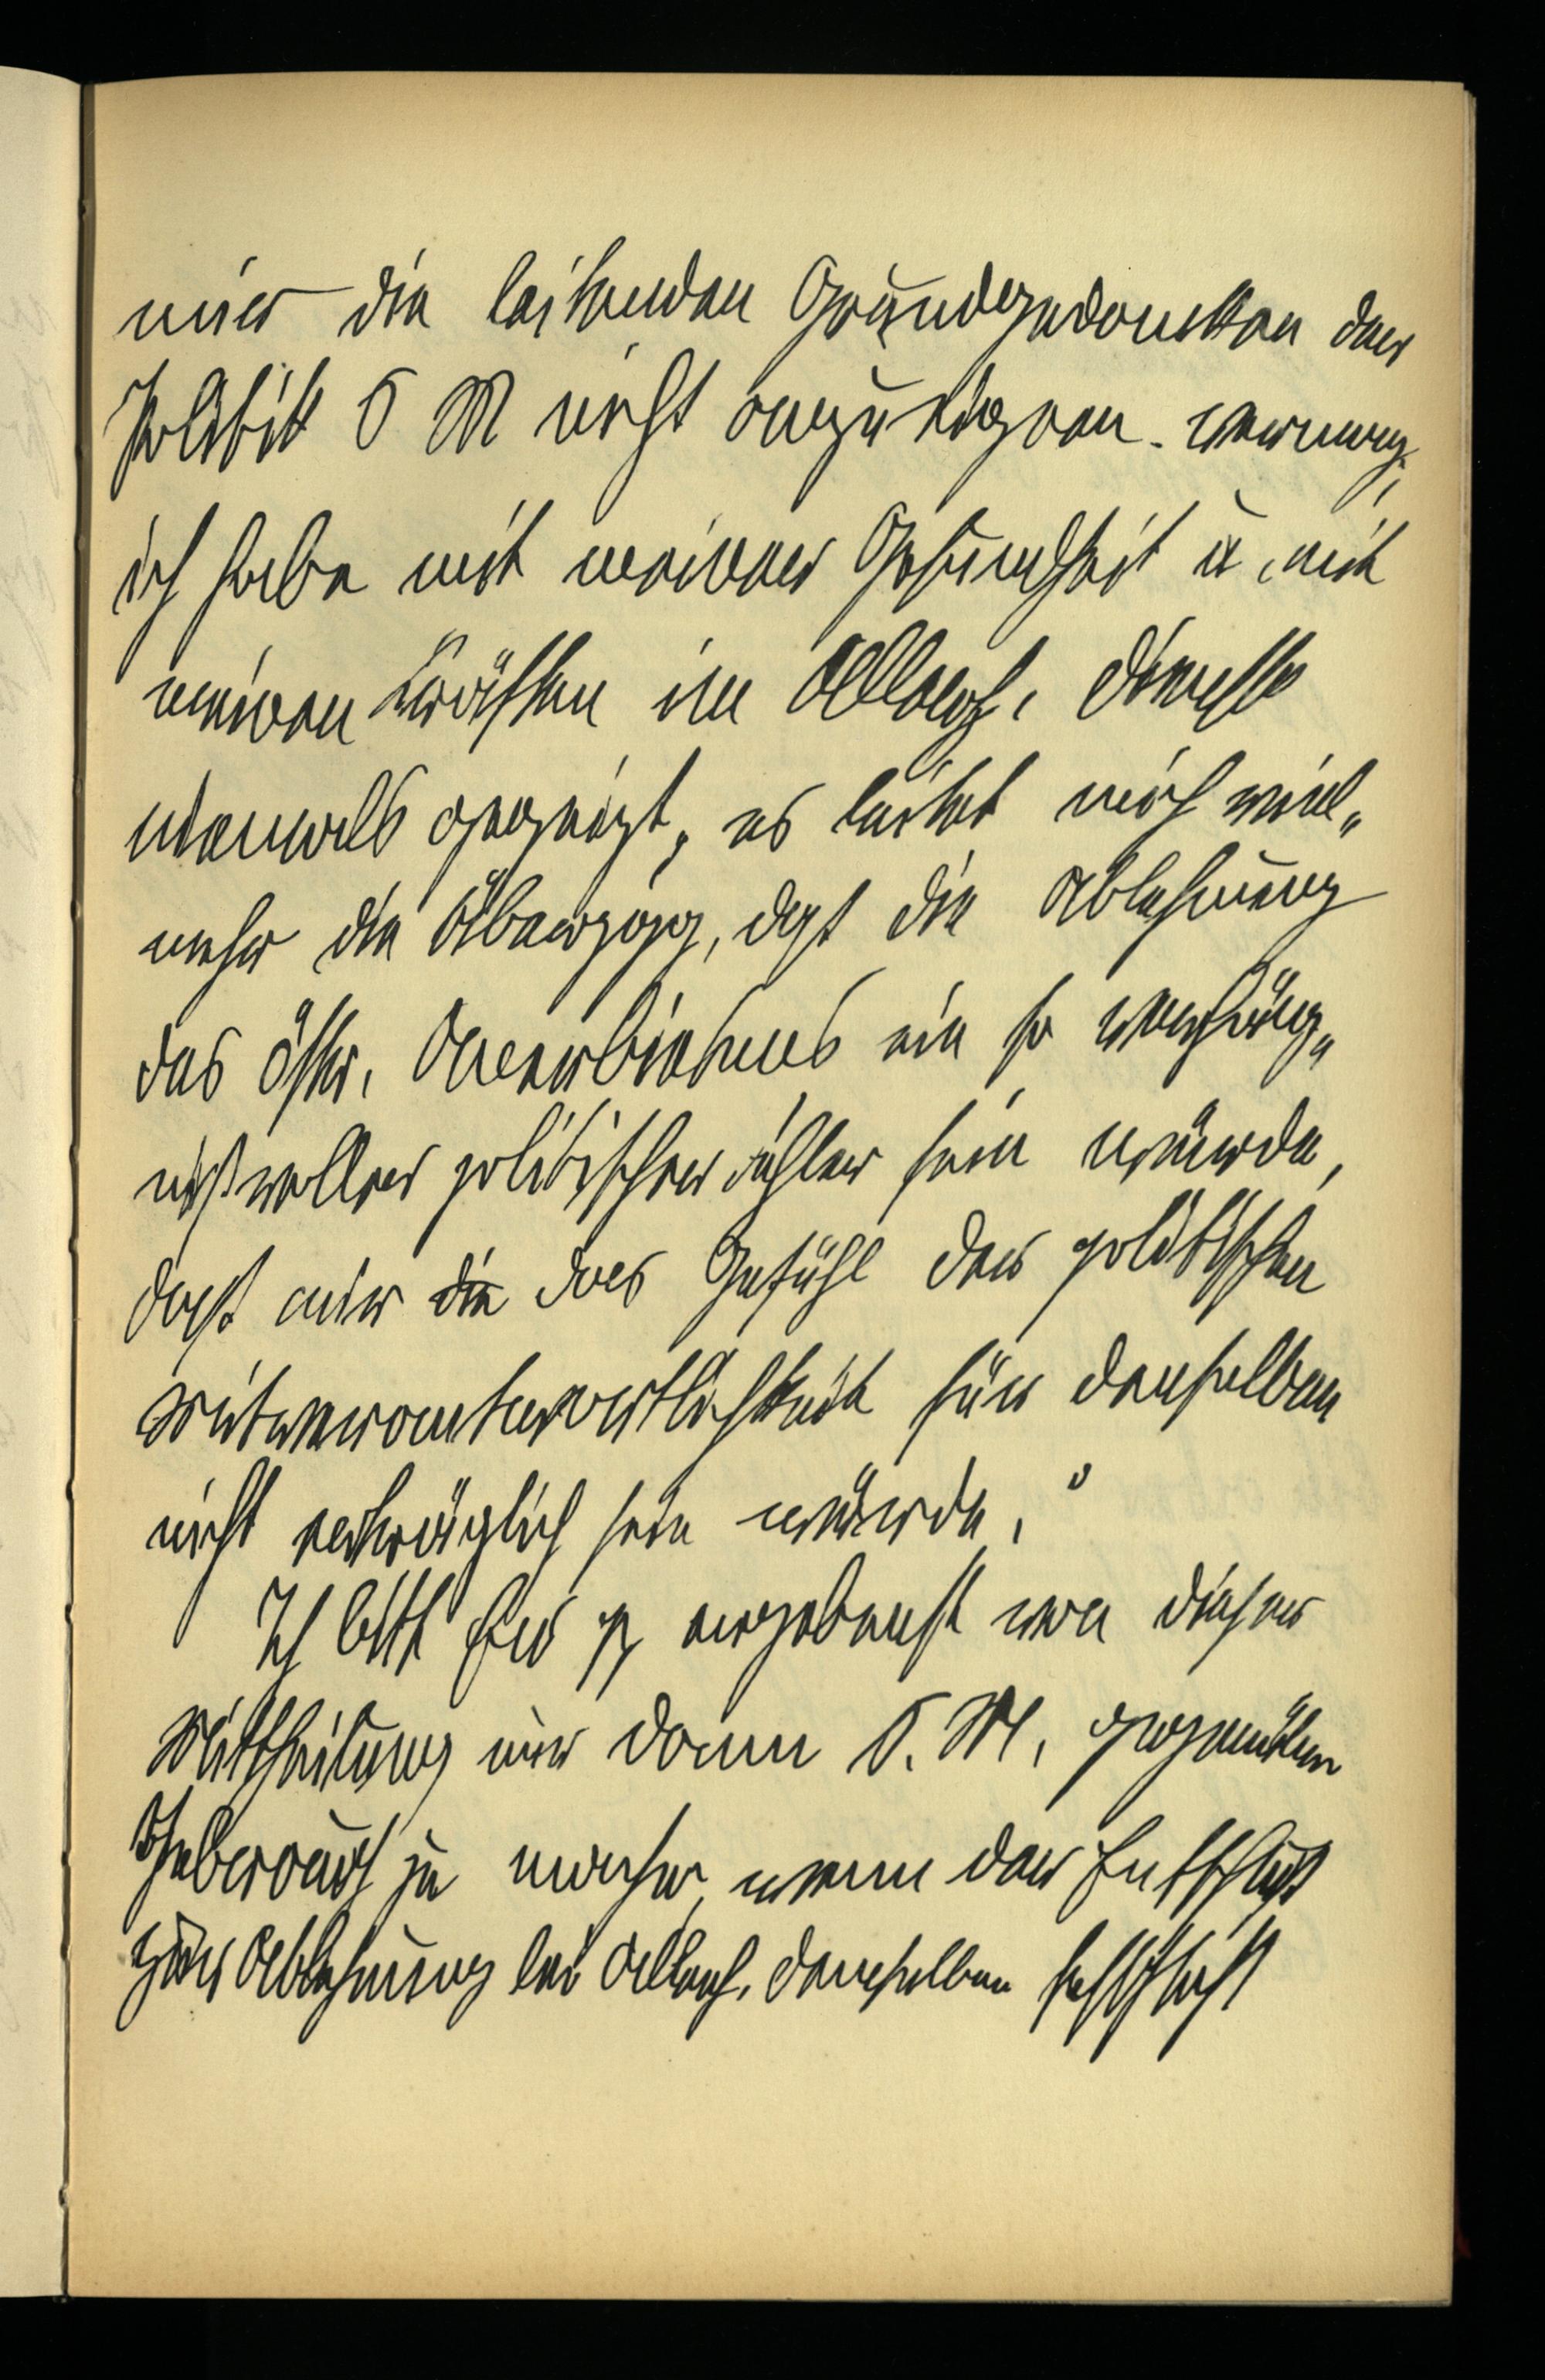 mir die leitenden Grundgedanken der
Politik S M nicht anzueignen vermag;
ich habe mit meiner Gesundheit u. mit
meinen Kräften im Allerh. Dienste
niemals gegeizt, es leitet mich viel„
mehr die Überzgg, daß die Ablehnung
des östr. Anerbietens ein so verhäng„
nißvoller politischer Fehler sein würde,
daß mir die das Gefühl der politischen
Mitverantwortlichkeit für denselben
nicht erträglich sein würde."
Ich bitte Ew p ergebenst von dieser
Mittheilung nur dann S. M. gegenüber
Gebrauch zu machen, wenn der Entschluß
zur Ablehnung bei Allerh. demselben feststeht